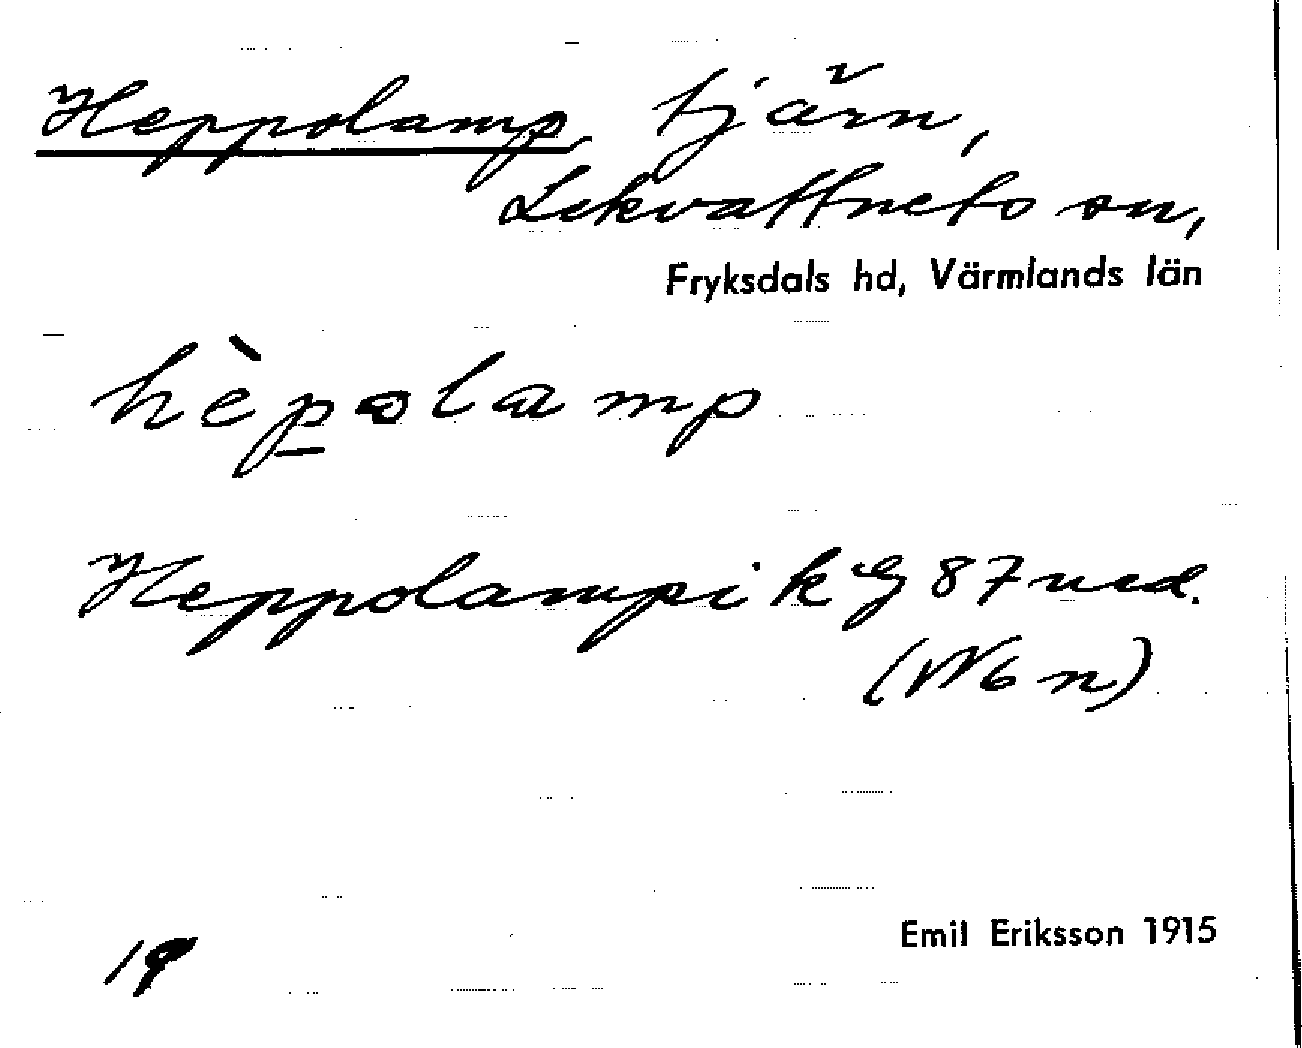 Heppolamp, tjärn,
Lekvattnets sn,
Fryksdals hd, Värmlands län
hèpolamp
Heppolampi k G 87 ned.
(Wbn)
Emil Eriksson 1915
19